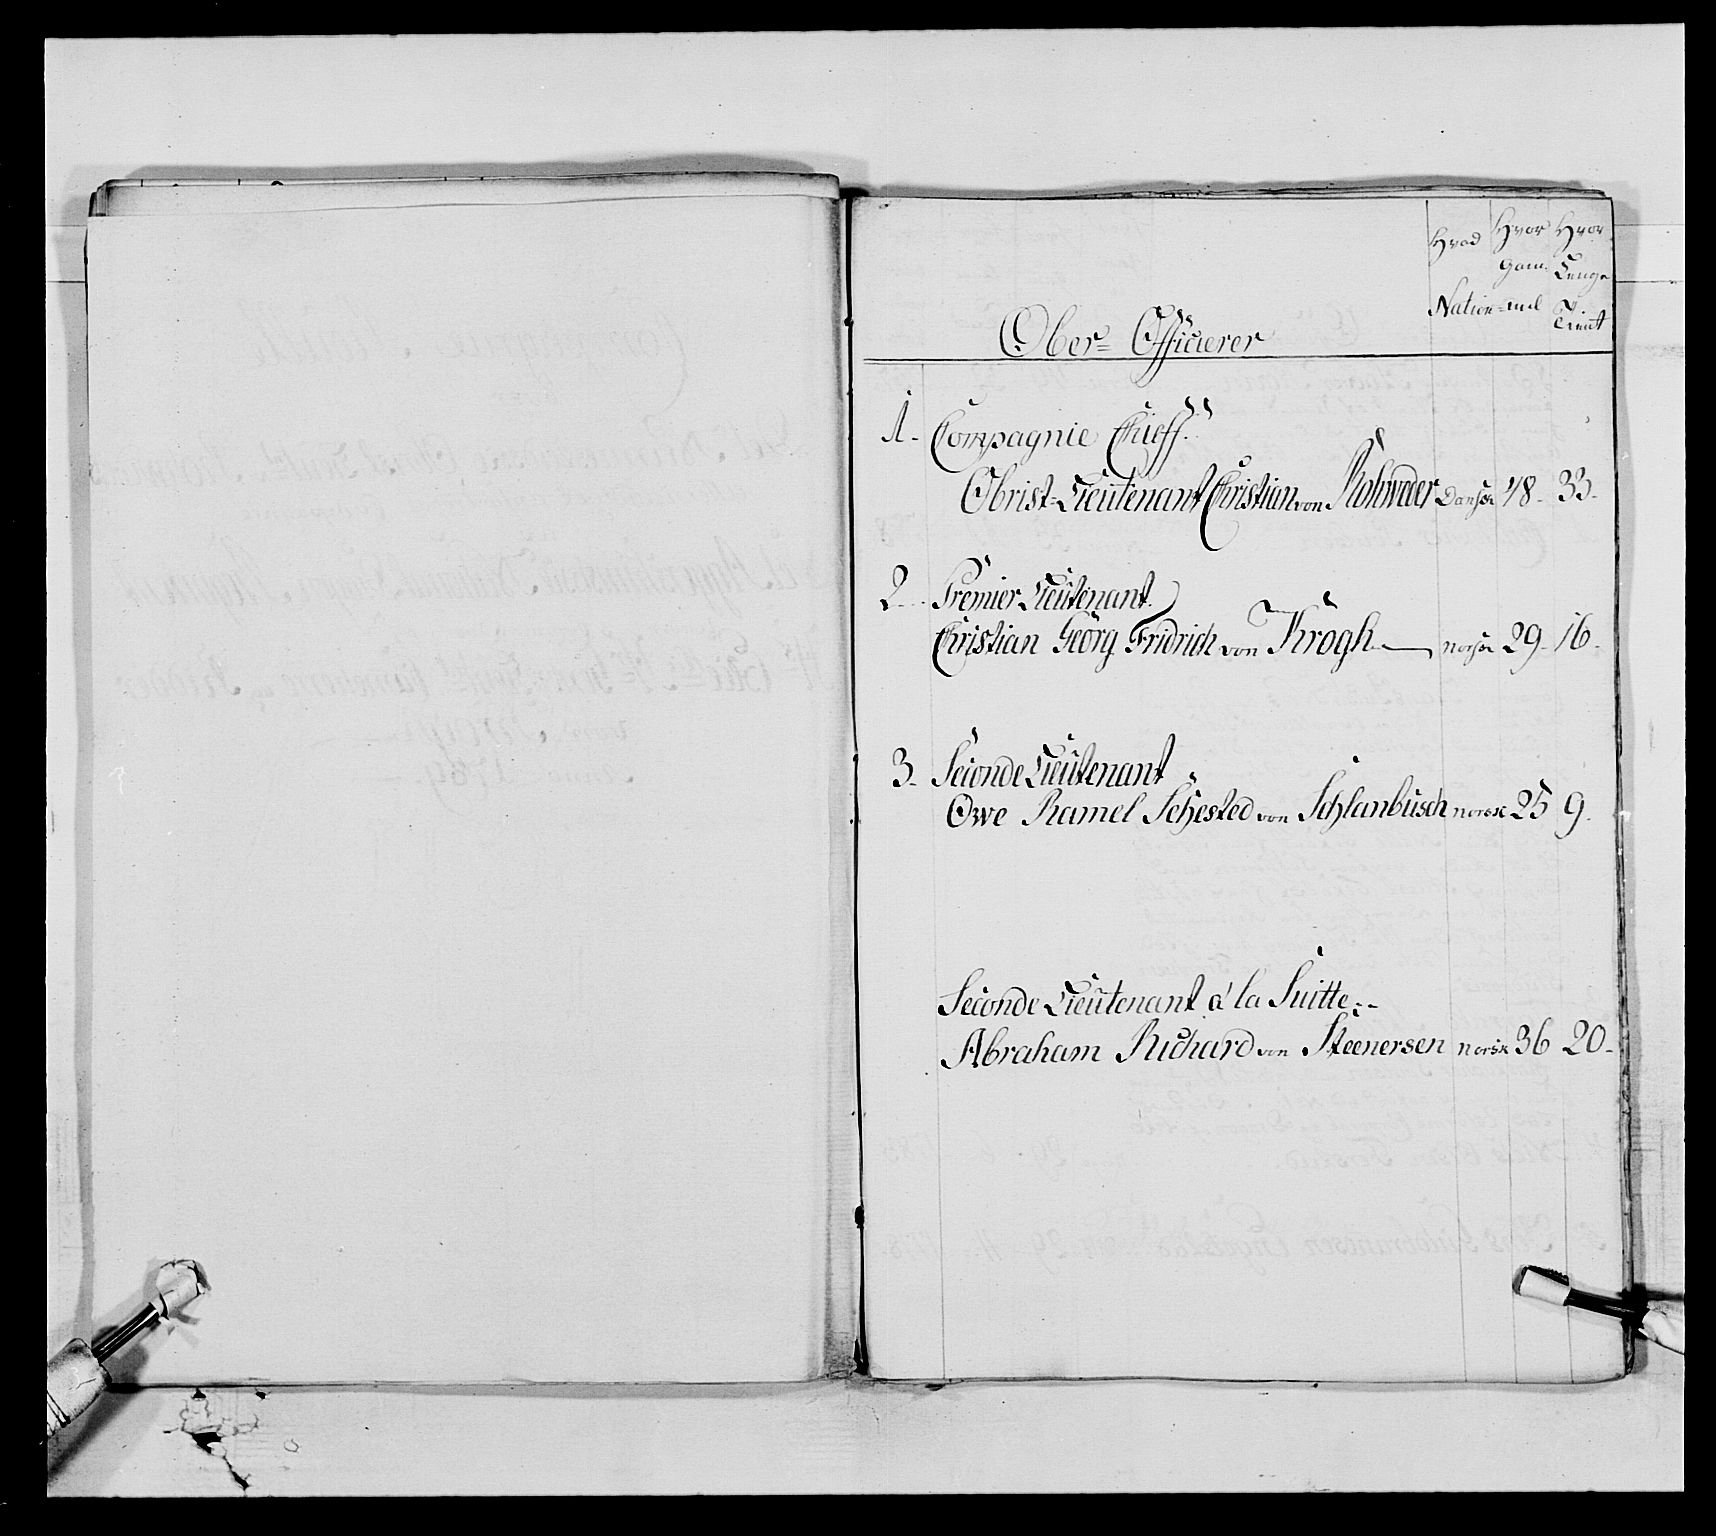 Hvad Hvor Hvor
Gam- Længe
Nation- mel Tient
Ober= Officierer
1. Compagnie Chieff.
Obrist=Lieutenant Christian von Rohweder Dansk 48. 33.
2. Premier Lieutenant.
Christian Georg Fridrich von Krogh norsk 29. 16.
3. Seconde Lieutenant
Owe Ramel Sehested von Schlanbusch norsk 25 9.
Seconde Lieutenant a' la Suitte:-
Abraham Richard von Steenersen norsk 36 20.